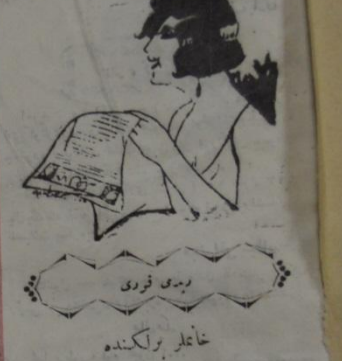 یدی قردی
خانملر برلكنده